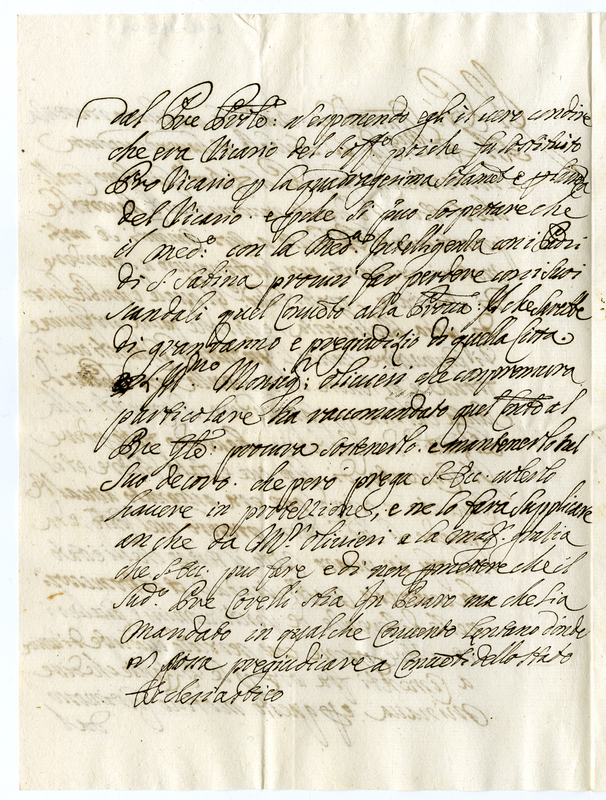 dal Pre Prile: s'esponendo egli il vero con dire
che era Vicario del S. Offo. poiche fu sostituito
Pro Vicario p la quadragesima solamte e
del Vicario. e pche si può sospettare che
il medo. con la meda. Intelligenza con i Pri
di S. Sabina procuri far perdere con i suoi
scandali quel Convto alla Proua. Il che sarebbe
di gran danno e pregiudizio di quella Città
Illmo Monsigr. Olivieri che con premura
particolare ha raccomandato quel Convto al
Pre Gle: procura sostenerlo. e mantenerlo nel
suo decoro. che però prega S. Ecc. auerlo
hauere in protellione, e ne lo farà supplicare
anche da Mr Olivieri e la magr. gratia
che S. Ecc. può fare è di non pmettere che il
sudo. Pre Covelli stia in Pesaro ma che sia
mandato in qualche Convento lontano donde
nò possa pregiudicare a Convti dello stato
Ecclesiastico